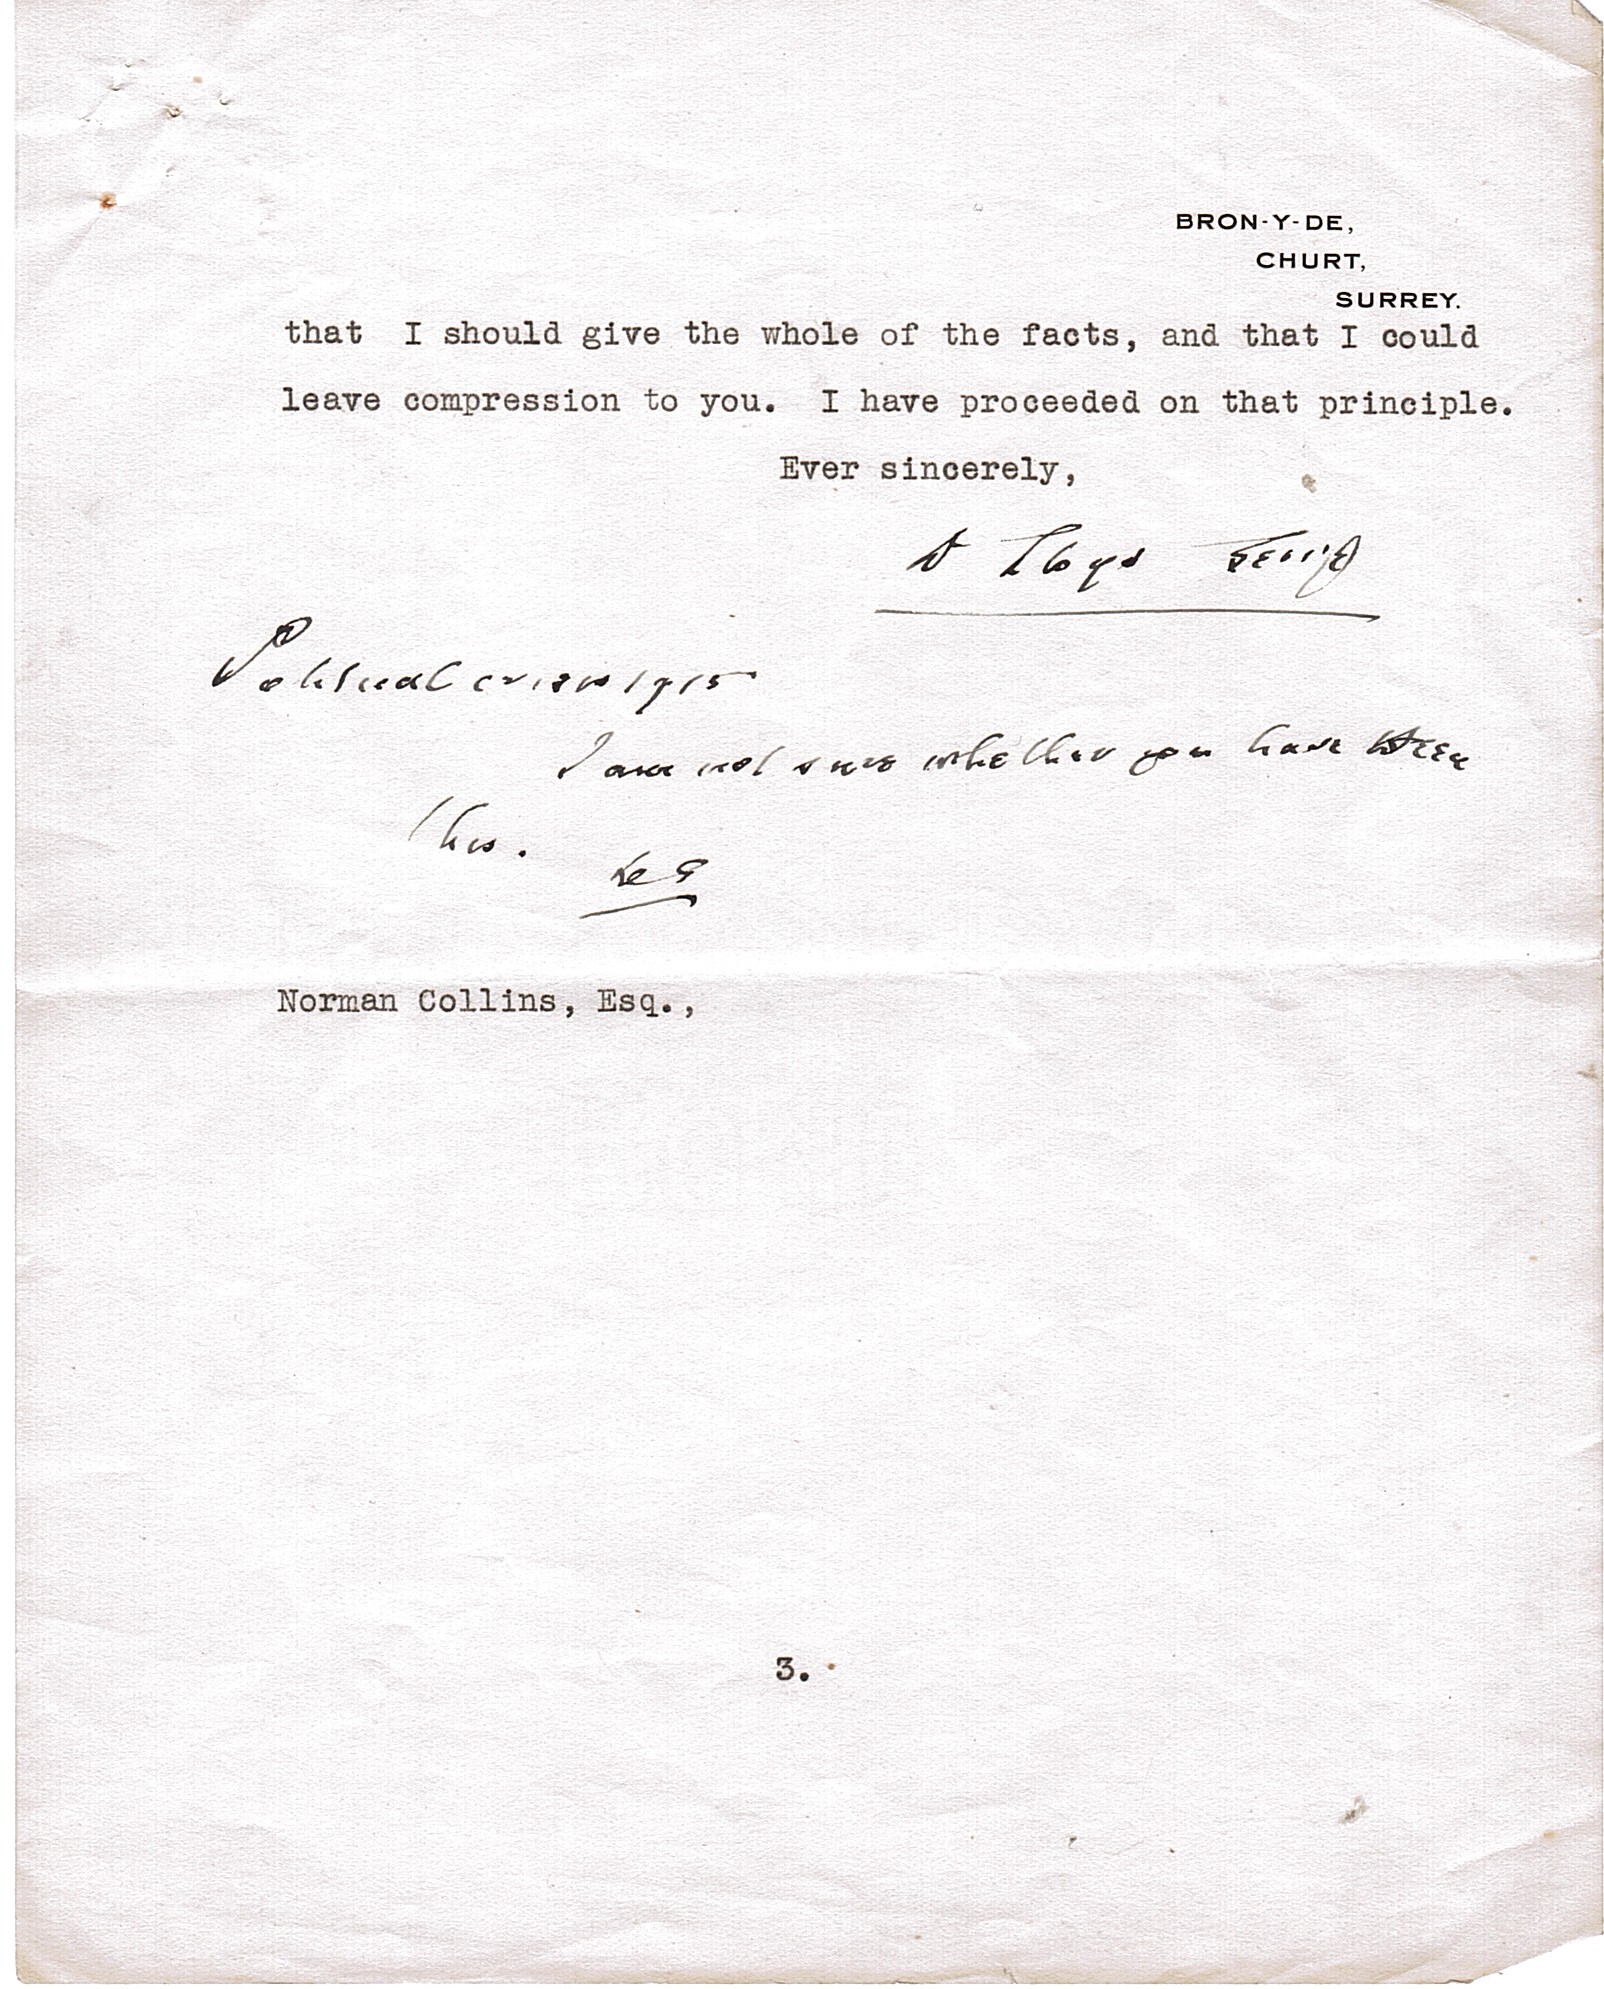 BRON-Y-DE,
CHURT,
SURREY.
that I should give the whole of the facts, and that I could
leave compression to you. I have proceeded on that principle.
Ever sincerely,
D Lloyd George
Political crisis 1915
I am not sure whether you have seen
this.
LlG
Norman Collins, Esq.,
3.